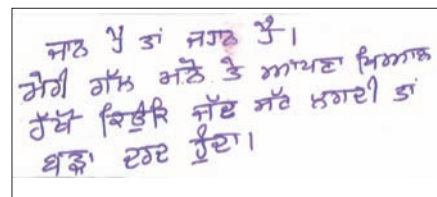 ਜਾਨ ਹੈ ਤਾਂ ਜਹਾਨ ਹੈ।
ਮੇਰੀ ਗੱਲ ਮਨੋ ਤੇ ਆਪਣਾ ਧਿਆਨ
ਰੱਖੋ ਕਿਉਂਕਿ ਜੱਦ ਸੱਟ ਲਗਦੀ ਤਾਂ
ਬੜਾ ਦਰਦ ਹੁੰਦਾ।